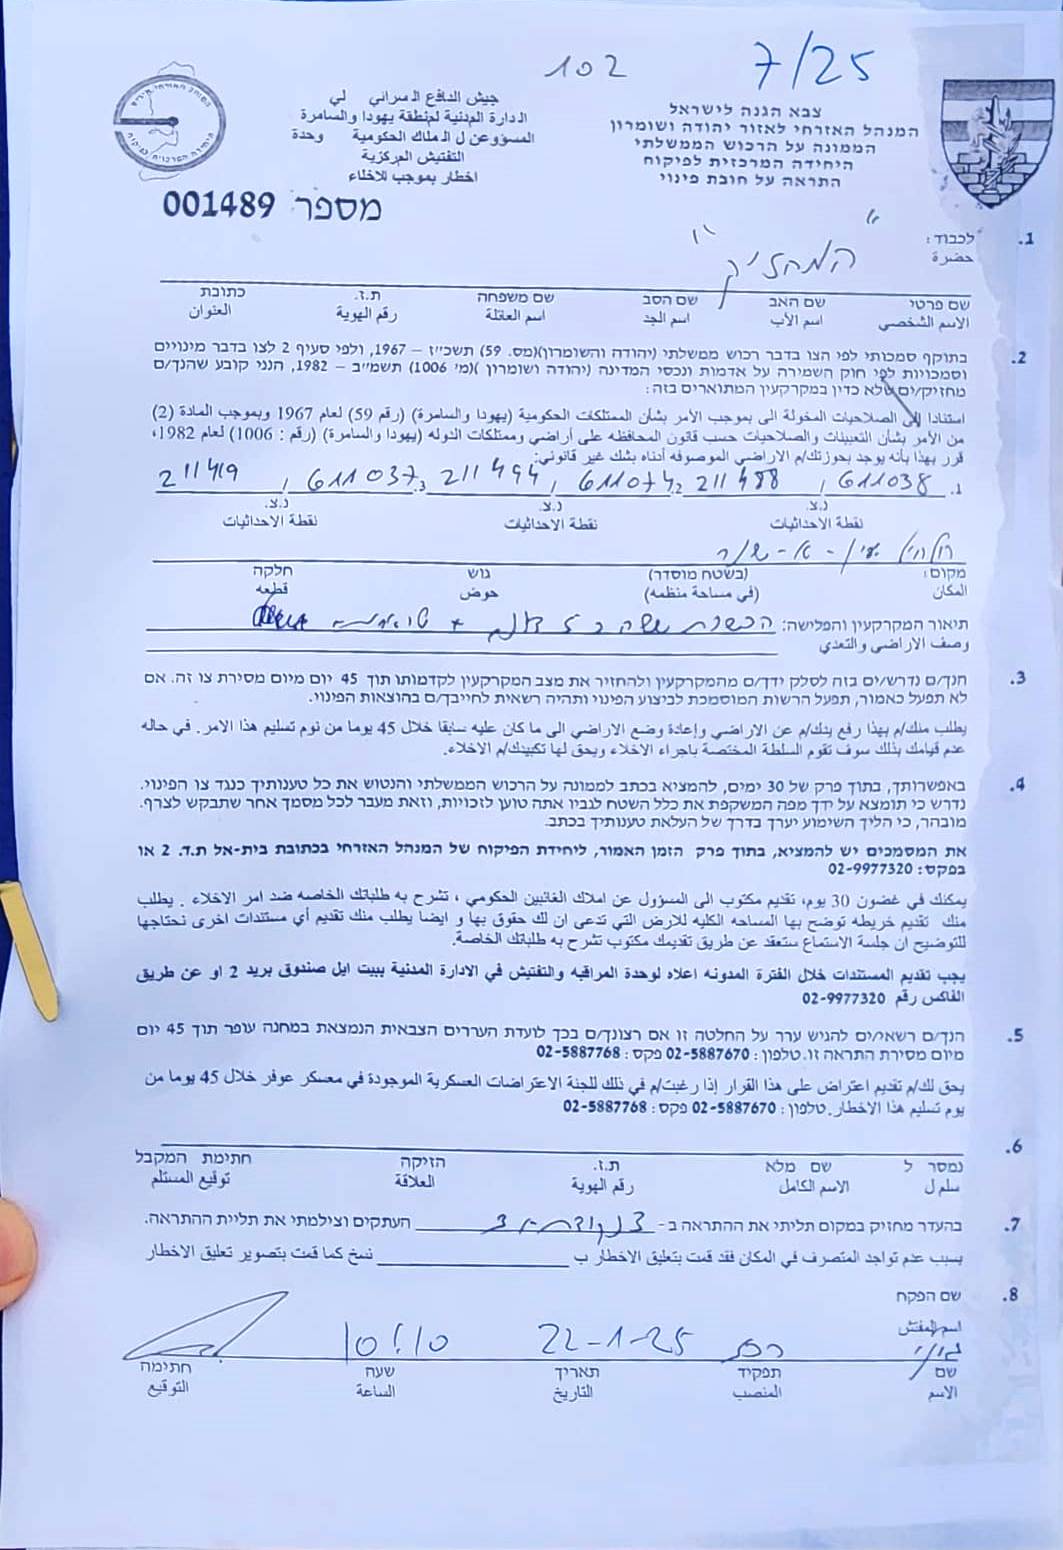 102
7/25
צבא הגנה לישראל
המנהל האזרחי לאזור יהודה ושומרון
הממונה על הרכוש הממשלתי
היחידה המרכזית לפיקוח
התראה על חובת פינוי
جيش الدافع السراني لي
الدارة المدنية لمنطقة يهودا والسامرة
المسؤوعن ل الملك الحكومية وحدة
التفتيش المركزية
اخطار بموجب للاخلاء
מספר 001489
.1 לכבוד:
حضرة
"המחזיק"
שם פרטי שם האב שם הסב שם משפחה ת.ז. כתובת
الاسم الشخصي اسم الأب اسم الجد اسم العائلة رقم الهوية العنوان
.2 בתוקף סמכותי לפי הצו בדבר רכוש ממשלתי (יהודה והשומרון)(מס. 59) תשכ״ז – 1967, ולפי סעיף 2 לצו בדבר מינויים
וסמכויות לפי חוק השמירה על אדמות ונכסי המדינה (יהודה ושומרון )(מ׳ 1006) תשמ״ב – 1982, הנני קובע שהנך/ם
מחזיק/ים שלא כדין במקרקעין המתוארים בזה:
استنادا إلى الصلاحيات المخولة الى بموجب الأمر بشأن الممتلكات الحكومية (يهودا والسامرة) (رقم 59) لعام 1967 وبموجب المادة (2)
من الأمر بشأن التعيينات والصلاحيات حسب قانون المحافظه على أراضي وممتلكات الدوله (يهودا والسامرة) (رقم : 1006) لعام 1982،
قرر بهذا بأنه يوجد بحوزتك/م الاراضي الموصوفه أدناه بشك غير قانوني:
.1 611038 / 211488 .2 611074 / 211494 .3 611037 / 211419
נ.צ. נ.צ. נ.צ.
نقطة الاحداثيات نقطة الاحداثيات نقطة الاحداثيات
מקום: (בשטח מוסדר) גוש חלקה
المكان (في مساحة منظمه) حوض قطعه
תיאור המקרקעין והפלישה: הכשרת שטח
وصف الاراضي والتعدي
.3 הנך/ם נדרש/ים בזה לסלק ידך/ם מהמקרקעין ולהחזיר את מצב המקרקעין לקדמותו תוך 45 יום מיום מסירת צו זה. אם
לא תפעל כאמור, תפעל הרשות המוסמכת לביצוע הפינוי ותהיה רשאית לחייבך/ם בהוצאות הפינוי.
يطلب منك/م بهذا رفع يدك/م عن الاراضي وإعادة وضع الاراضي الى ما كان عليه سابقا خلال 45 يوما من نوم تسليم هذا الامر. في حاله
عدم قيامك بذلك سوف تقوم السلطة المختصة باجراء الاخلاء ويحق لها تكبيدك/م الاخلاء.
.4 באפשרותך, בתוך פרק של 30 ימים, להמציא בכתב לממונה על הרכוש הממשלתי והנטוש את כל טענותיך כנגד צו הפינוי.
נדרש כי תומצא על ידך מפה המשקפת את כלל השטח לגביו אתה טוען לזכויות, וזאת מעבר לכל מסמך אחר שתבקש לצרף.
מובהר, כי הליך השימוע יערך בדרך של העלאת טענותיך בכתב.
את המסמכים יש להמציא, בתוך פרק הזמן האמור, ליחידת הפיקוח של המנהל האזרחי בכתובת בית-אל ת.ד. 2 או
בפקס: 02-9977320
يمكنك في غضون 30 يوم، تقديم مكتوب الى المسؤول عن املاك الغائبين الحكومي ، تشرح به طلباتك الخاصه ضد امر الاخلاء . يطلب
منك تقديم خريطه توضح بها المساحه الكليه للارض التي تدعى ان لك حقوق بها و ايضا يطلب منك تقديم أي مستندات اخرى تحتاجها
للتوضيح ان جلسة الاستماع ستعقد عن طريق تقديمك مكتوب تشرح به طلباتك الخاصة.
يجب تقديم المستندات خلال الفترة المدونه اعلاه لوحدة المراقبه والتفتيش في الادارة المدنية ببيت ايل صندوق بريد 2 او عن طريق
الفاكس رقم 02-9977320
.5 הנך/ם רשאי/ים להגיש ערר על החלטה זו אם רצונך/ם בכך לועדת העררים הצבאית הנמצאת במחנה עופר תוך 45 יום
מיום מסירת התראה זו. טלפון: 02-5887670 פקס: 02-5887768
يحق لك/م تقديم اعتراض على هذا القرار إذا رغبت/م في ذلك للجنة الاعتراضات العسكرية الموجودة في معسكر عوفر خلال 45 يوما من
يوم تسليم هذا الاخطار. טלפון: 02-5887670 פקס: 02-5887768
.6
נמסר ל שם מלא ת.ז. הזיקה חתימת המקבל
سلم ل الاسم الكامل رقم الهوية العلاقة توقيع المستلم
.7 בהעדר מחזיק במקום תליתי את ההתראה ב- העתקים וצילמתי את תליית ההתראה.
بسبب عدم تواجد المتصرف في المكان فقد قمت بتعليق الاخطار ب نسخ كما قمت بتصوير تعليق الاخطار
.8 שם הפקח
اسم المفتش
22-1-25 10:10
שם תפקיד תאריך שעה חתימה
الاسم المنصب التاريخ الساعة التوقيع